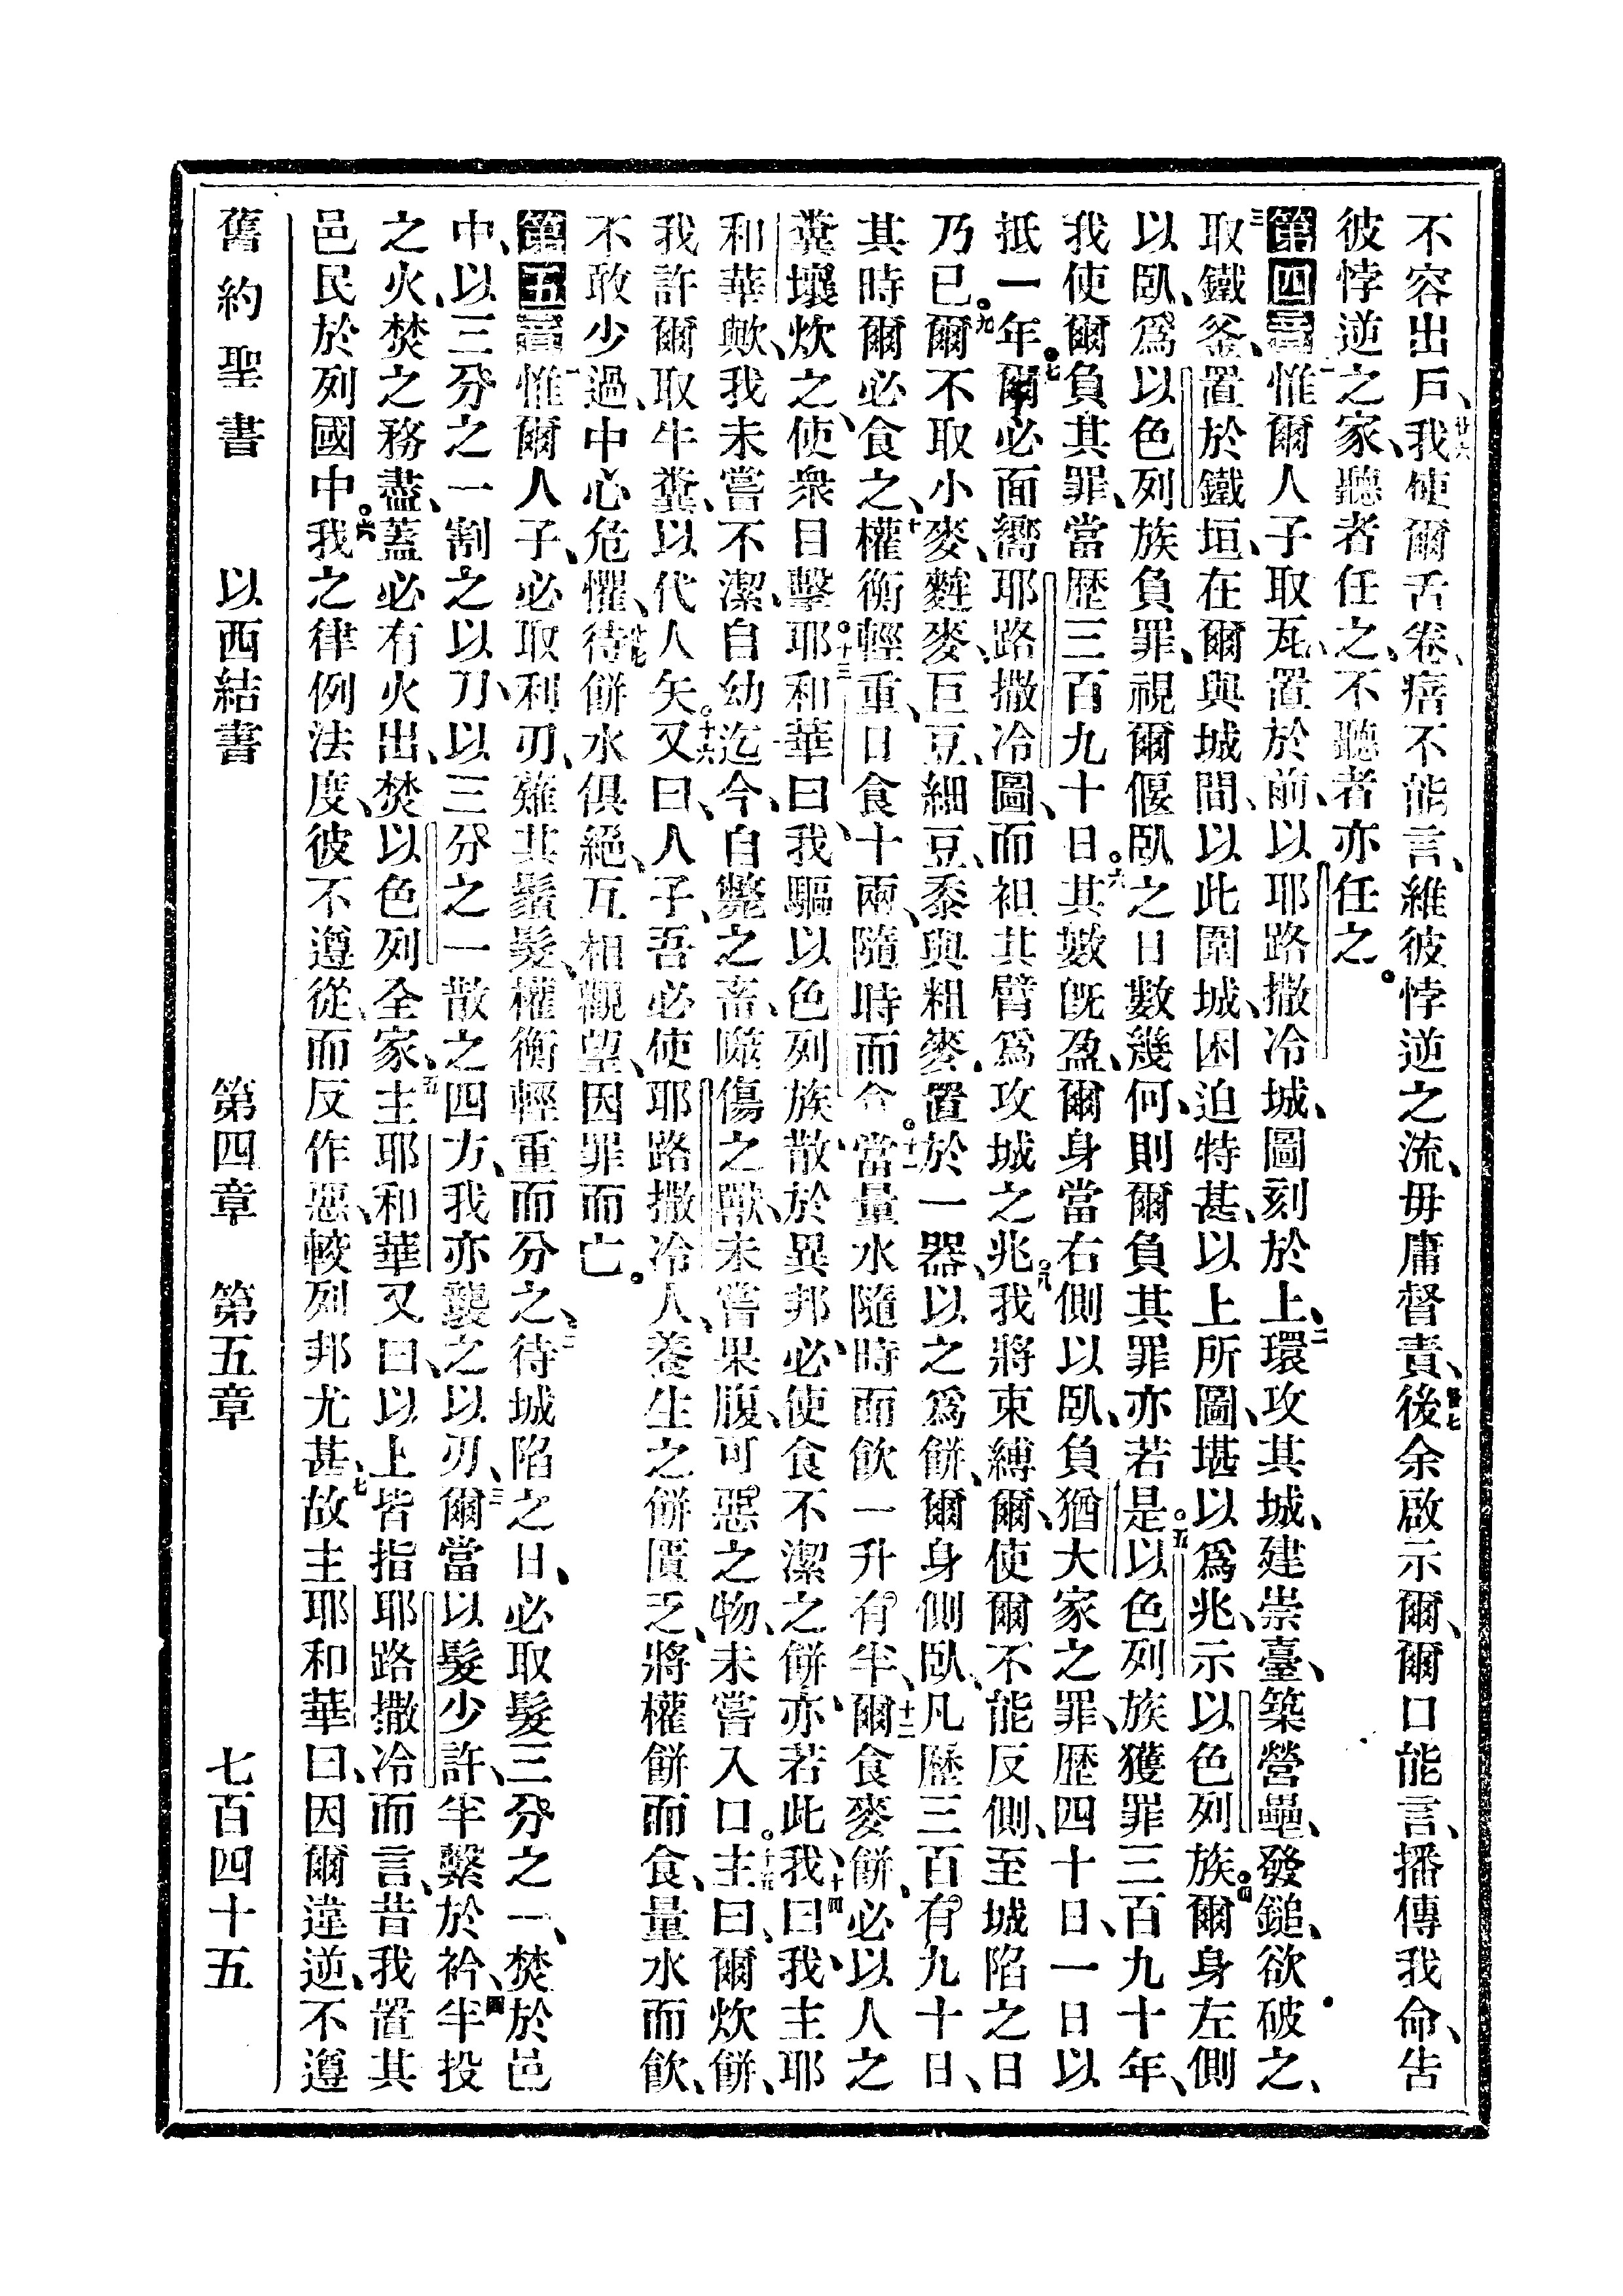 不容出戶、廿六我使爾舌卷、瘖不能言、維彼悖逆之流、毋庸督責、廿七後余啟示爾、爾口能言、播傳我命、告
彼悖逆之家、聽者任之、不聽者亦任之。
第四章一惟爾人子取瓦、置於前、以耶路撒冷城、圖刻於上、二環攻其城、建崇臺、築營壘、發鎚、欲破之、
三取鐵釜、置於鐵垣、在爾與城間、以此圍城、困迫特甚、以上所圖、堪以爲兆、示以色列族。四爾身左側
以臥、爲以色列族負罪、視爾偃臥之日數幾何、則爾負其罪亦若是。五以色列族獲罪三百九十年、
我使爾負其罪、當歷三百九十日。六其數旣盈、爾身當右側以臥、負猶大家之罪、歷四十日、一日以
抵一年。七爾必面嚮耶路撒冷圖、而袒其臂爲攻城之兆。八我將束縛爾、使爾不能反側、至城陷之日
乃已。九爾不取小麥、麰麥、巨豆、細豆、黍與粗麥、置於一器、以之爲餅、爾身側臥、凡歷三百有九十日、
其時爾必食之、十權衡輕重、日食十兩、隨時而食。十一當量水隨時而飲一升有半、十二爾食麥餅、必以人之
糞壤炊之、使衆目擊。十三耶和華曰、我驅以色列族、散於異邦、必使食不潔之餅、亦若此、十四我曰、我主耶
和華歟、我未嘗不潔、自幼迄今、自斃之畜、噬傷之獸、未嘗果腹、可惡之物、未嘗入口。十五主曰、爾炊餅、
我許爾取牛糞、以代人矢。十六又曰、人子、吾必使耶路撒冷人、養生之餅匱乏、將權餅而食、量水而飲、
不敢少過、中心危懼、十七待餅水俱絕、互相觀望、因罪而亡。
第五章一惟爾人子、必取利刃、薙其鬚髮、權衡輕重而分之、二待城陷之日、必取髮三分之一、焚於邑
中、以三分之一割之以刀、以三分之一散之四方、我亦襲之以刃、三爾當以髮少許、半繫於衿、四半投
之火、焚之務盡、蓋必有火出、焚以色列全家、五主耶和華又曰、以上皆指耶路撒冷而言、昔我置其
邑民於列國中。六我之律例法度、彼不遵從、而反作惡、較列邦尤甚、七故主耶和華曰、因爾違逆、不遵
舊約聖書 以西結書 第四章 第五章 七百四十五